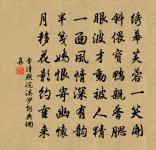 绣幕芙蓉一笑开
斜偎宝鸭亲香腮
眼波才动被人猜
一面风情深有韵
半笺娇恨寄幽怀
月移花影约重来
李清照浣溪沙词典